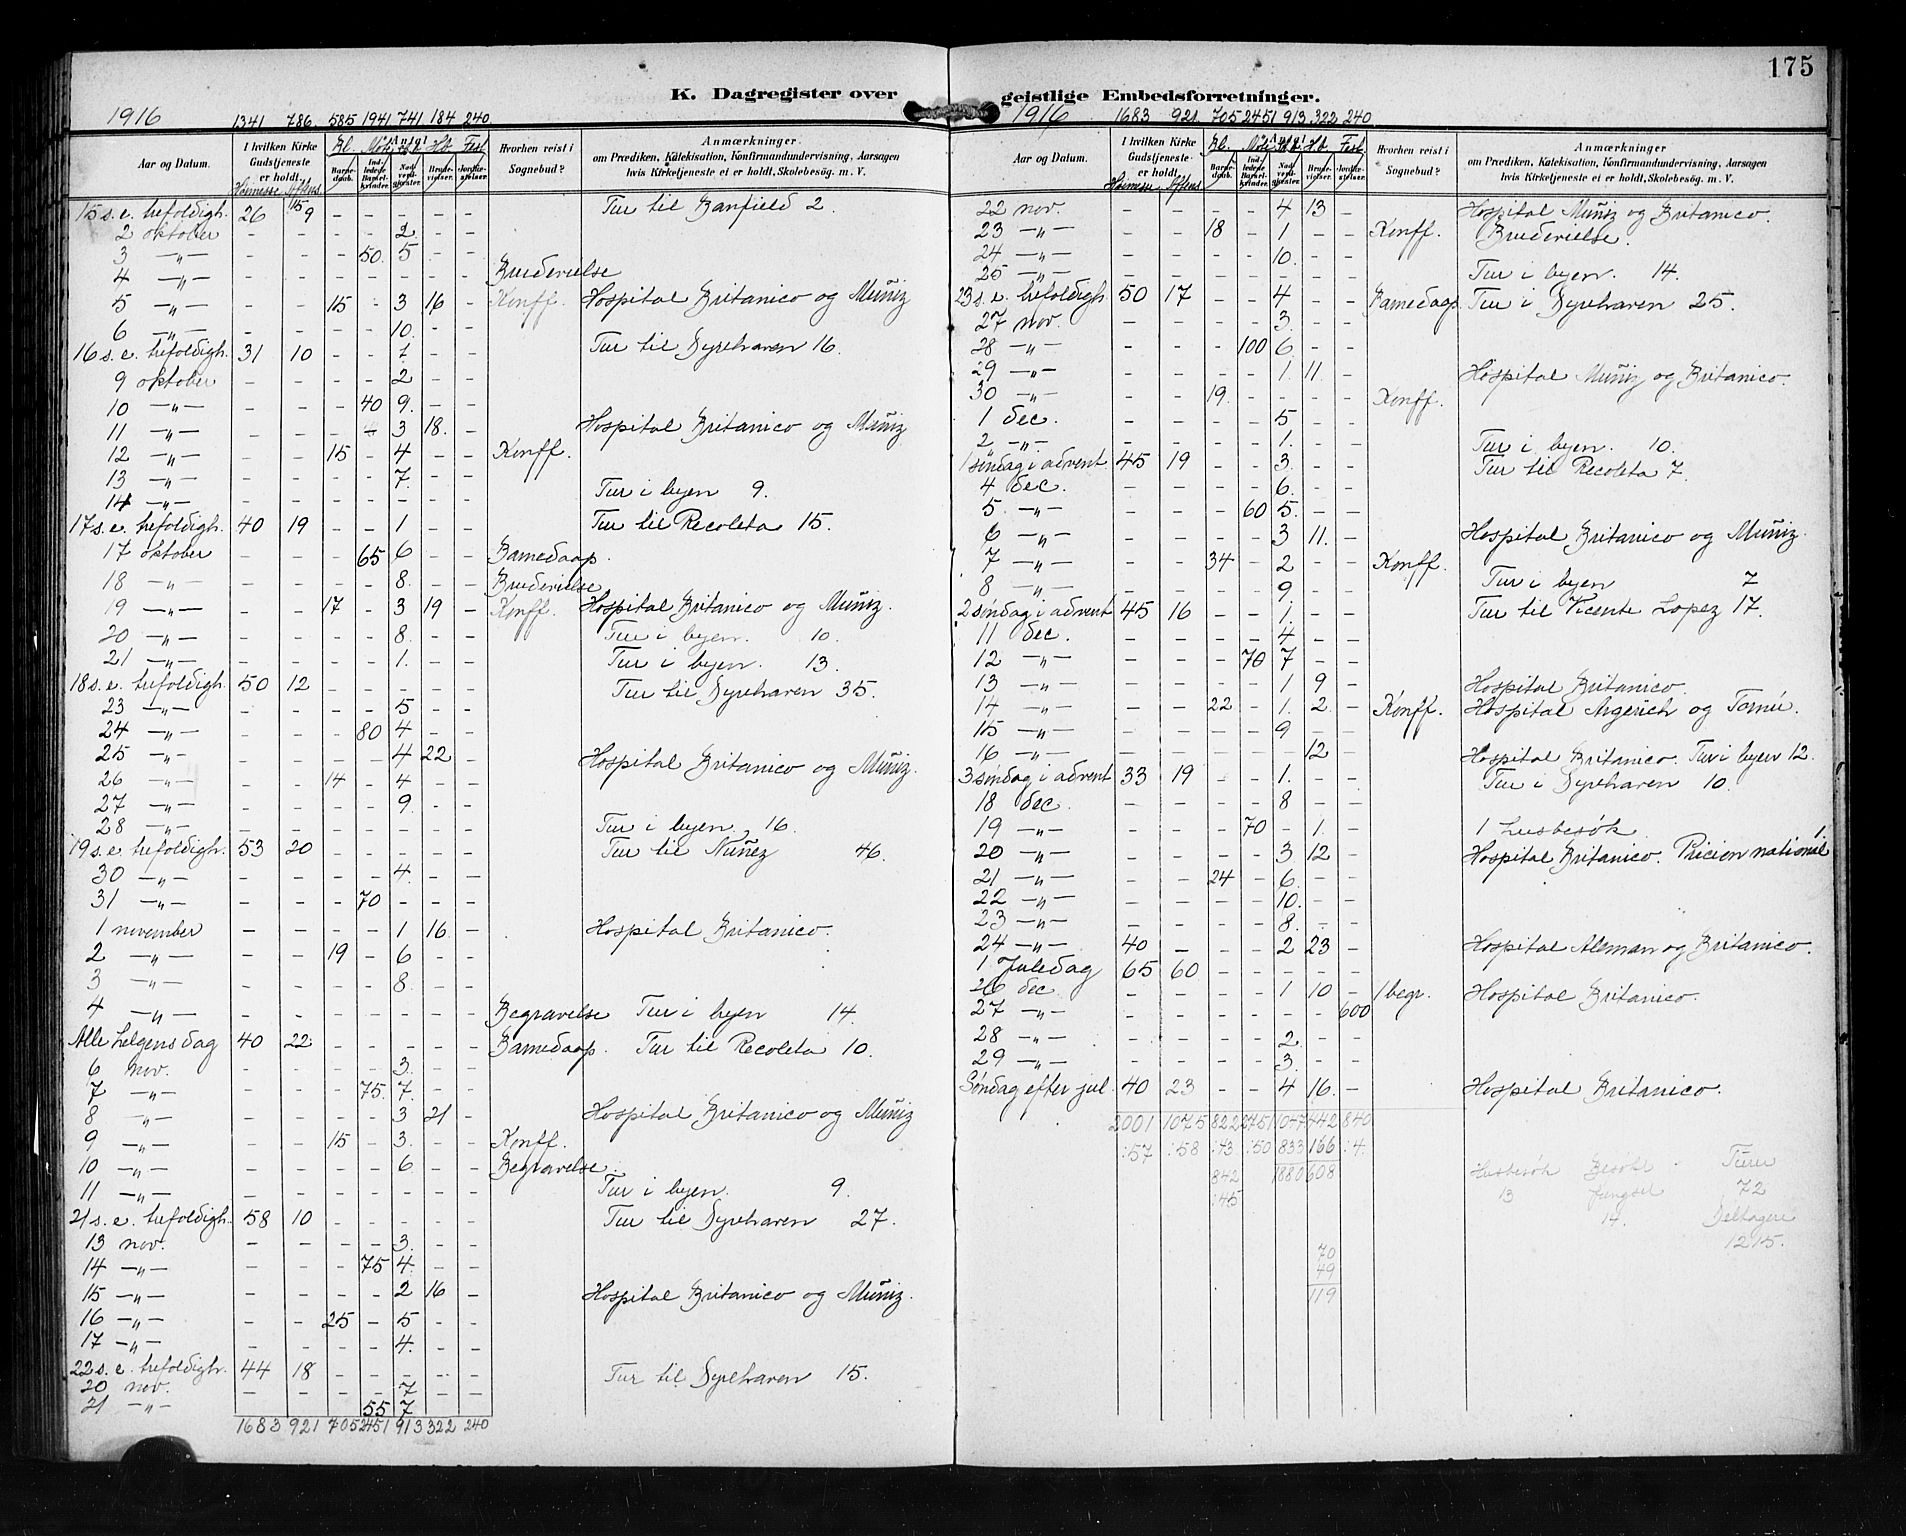 175
K. Dagregister over geistlige Embedsforretninger.
1916 1341 786. 585 1941 741 184 240.
Bl. Möte Hb. Fest
Aar og Datum. I hvilken Kirke Gudstjeneste er holdt. Barnedaab. Indledede Barselkvinder. Nadverdgjester. Brudevielser. Jordfæstelser. Hvorhen reist i Sognebud? Anmærkninger om Prædiken, Katekisation, Konfirmandundervisning, Aarsagen hvis Kirketjeneste ei er holdt, Skolebesög m. V.
Höimesse Aftens
15 s. e. trefoldigh. 26 9 – – – – – Tur til Banfield 2.
2 oktober – – – – 2. – –
3 –„– – – – 50. 5 – –
4 –„– – – – – – – – Brudevielse
5 –„– – – 15 – 3 16 – Konff. Hospital Britanico og Muñiz
6 –„– – – – – 10. – –
16 s. e. trefoldigh. 31 10 – – 7. – – Tur til Dyrehaven 16.
9 oktober – – – – 2 – –
10 –„– – – – 40 9. – –
11 –„– – – – – 3 18. – Hospital Britanico og Muñiz
12 –„– – – 15 – 4 – – Konff.
13 –„– – – – – 7. – –
14 –„– – – – – – – – Tur i byen 9.
17 s. e. trefoldigh. 40 19 – – 1 – – Tur til Recoleta 15.
17 oktober – – – 65 6 – – Barnedaap.
18 –„– – – – – 8. – – Brudevielse
19 –„– – – 17 – 3 19 – Konff. Hospital Britanico og Muñiz.
20 –„– – – – – 8. – – Tur i byen. 10.
21 –„– – – – – 1. – – Tur i byen. 13.
18 s. e. trefoldigh. 50 12 – – – – – Tur til Dyrehaven 35.
23 –„– – – – – 5 – –
24 –„– – – – 80 4 – –
25 –„– – – – – 4 22 – Hospital Britanico og Muñiz.
26 –„– – – 14 – 4 – –
27 –„– – – – – 9. – –
28 –„– – – – – – – – Tur i byen. 16.
19 s. e. trefoldigh. 53 20 – – – – – Tur til Nuñez 46.
30 –„– – – – – 4. – –
31 –„– – – – 70 – – –
1 november – – – – 1 16 – Hospital Britanico.
2 –„– – – 19 – 6 – –
3 –„– – – – – 8. – –
4 –„– – – – – – – – Begravelse Tur i byen 14.
Alle helgensdag 40 22. – – – – – Barnedaap. Tur til Recoleta 10.
6 nov. – – – – 3. – –
7 –„– – – – 75. 7. – –
8 –„– – – – – 3 21 – Hospital Britanico og Muñiz
9 –„– – – 15 – 3. – – Konff.
10 –„– – – – – 6 – – Begravelse.
11 –„– – – – – – – – Tur i byen. 9.
21 s. e. trefoldigh. 58 10 – – – – – Tur til Dyrehaven 27.
13 nov. – – – – 3. – –
14 –„– – – – 75 4. – –
15 –„– – – – – 2 16 – Hospital Britanico og Muñiz.
16 –„– – – 25 – 5 – –
17 –„– – – – – 4. – –
22 s. e. trefoldigh. 44 18 – – – – – Tur til Dyrehaven 15.
20 nov. – – – – 7 – –
21 –„– – – – 55 7 – –
1683 921 705 2451 913 322 240
1916 1683 921. 705 2451 913 322 240
Bl. Möte Hb. Fest
Aar og Datum. I hvilken Kirke Gudstjeneste er holdt. Barnedaab. Indledede Barselkvinder. Nadverdgjester. Brudevielser. Jordfæstelser. Hvorhen reist i Sognebud? Anmærkninger om Prædiken, Katekisation, Konfirmandundervisning, Aarsagen hvis Kirketjeneste ei er holdt, Skolebesög m. V.
Höimesse Aftens
22 nov. – – – – 4 13 – Hospital Muñiz og Britanico.
23 –„– – – 18 – 1 – – Konff. Brudevielse.
24 –„– – – – – 10. – –
25 –„– – – – – – – – Tur i byen. 14.
23 s. e. trefoldigh. 50 17 – – 4 – – Barnedaap. Tur i Dyrehaven 25.
27 nov. – – – – 3. – –
28 –„– – – – 100 6 – –
29 –„– – – – – 1. 11. – Hospital Muñiz og Britanico.
30 –„– – – 19. – – – – Konff.
1 dec. – – – – 5 – –
2 –„– – – – – 1. – – Tur i byen. 10.
1 søndag i advent 45 19 – – 3. – – Tur til Recoleta 7.
4 dec. – – – – 6. – –
5 –„– – – – 60 5. – –
6 –„– – – – – 3 11. – Hospital Britanico og Muñiz.
7 –„– – – 34 – 2 – – Konff.
8 –„– – – – – 9. – – Tur i byen 7
2 søndag i advent 45 16 – – 1. – – Tur til Vicente Lopez 17.
11 dec. – – – – 4 – –
12 –„– – – – 70 7 – –
13 –„– – – – – 1 9 – Hospital Britanico.
14 –„– – – 22 – 1. 2. – Konff. Hospital Argerich og Tornú.
15 –„– – – – – 9 – –
16 –„– – – – – – 12 – Hospital Britanico. Tur i byen 12.
3 søndag i advent 33 19 – – 1. – – Tur i Dyrehaven 10.
18 dec. – – – – 8 – –
19 –„– – – – 70 – 1. – 1 husbesök
20 –„– – – – – 3 12 – Hospital Britanico. Pricion national
21 –„– – – 24 – 6 – –
22 –„– – – – – 10. – –
23 –„– – – – – 8. – –
24 –„– 40 – – – 2 23 – Hospital Aleman og Britanico.
1 Juledag 65 60 – – – – –
26 dec – – – – 1 10 – 1 begr. Hospital Britanico.
27 –„– – – – – – – 600
28 –„– – – – – 2. – –
29 –„– – – – – 3. – –
Søndag efter jul 40 23 – – 4 16. – Hospital Britanico.
2001 1075 822 2751 1047 442 840
:57 :58 :43 :50 833 166 :4.
842 1880 608
:45
Husbesök Besök Turer
13 fengsel 72
14. Deltagere
1215.
70
49
119